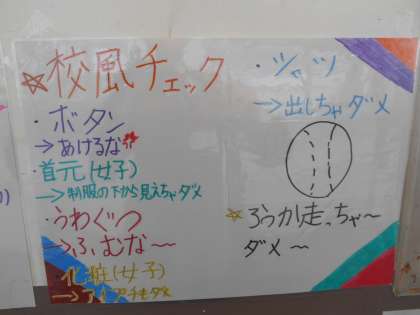 ☆校風チェック
・ボタン
→あけるな
・首元(女子)
→制服の下から見えちゃダメ
・うわぐつ
→ふむな〜
・化粧(女子)
・シャツ
→出しちゃダメ
☆ろうか走っちゃ〜
ダメ〜